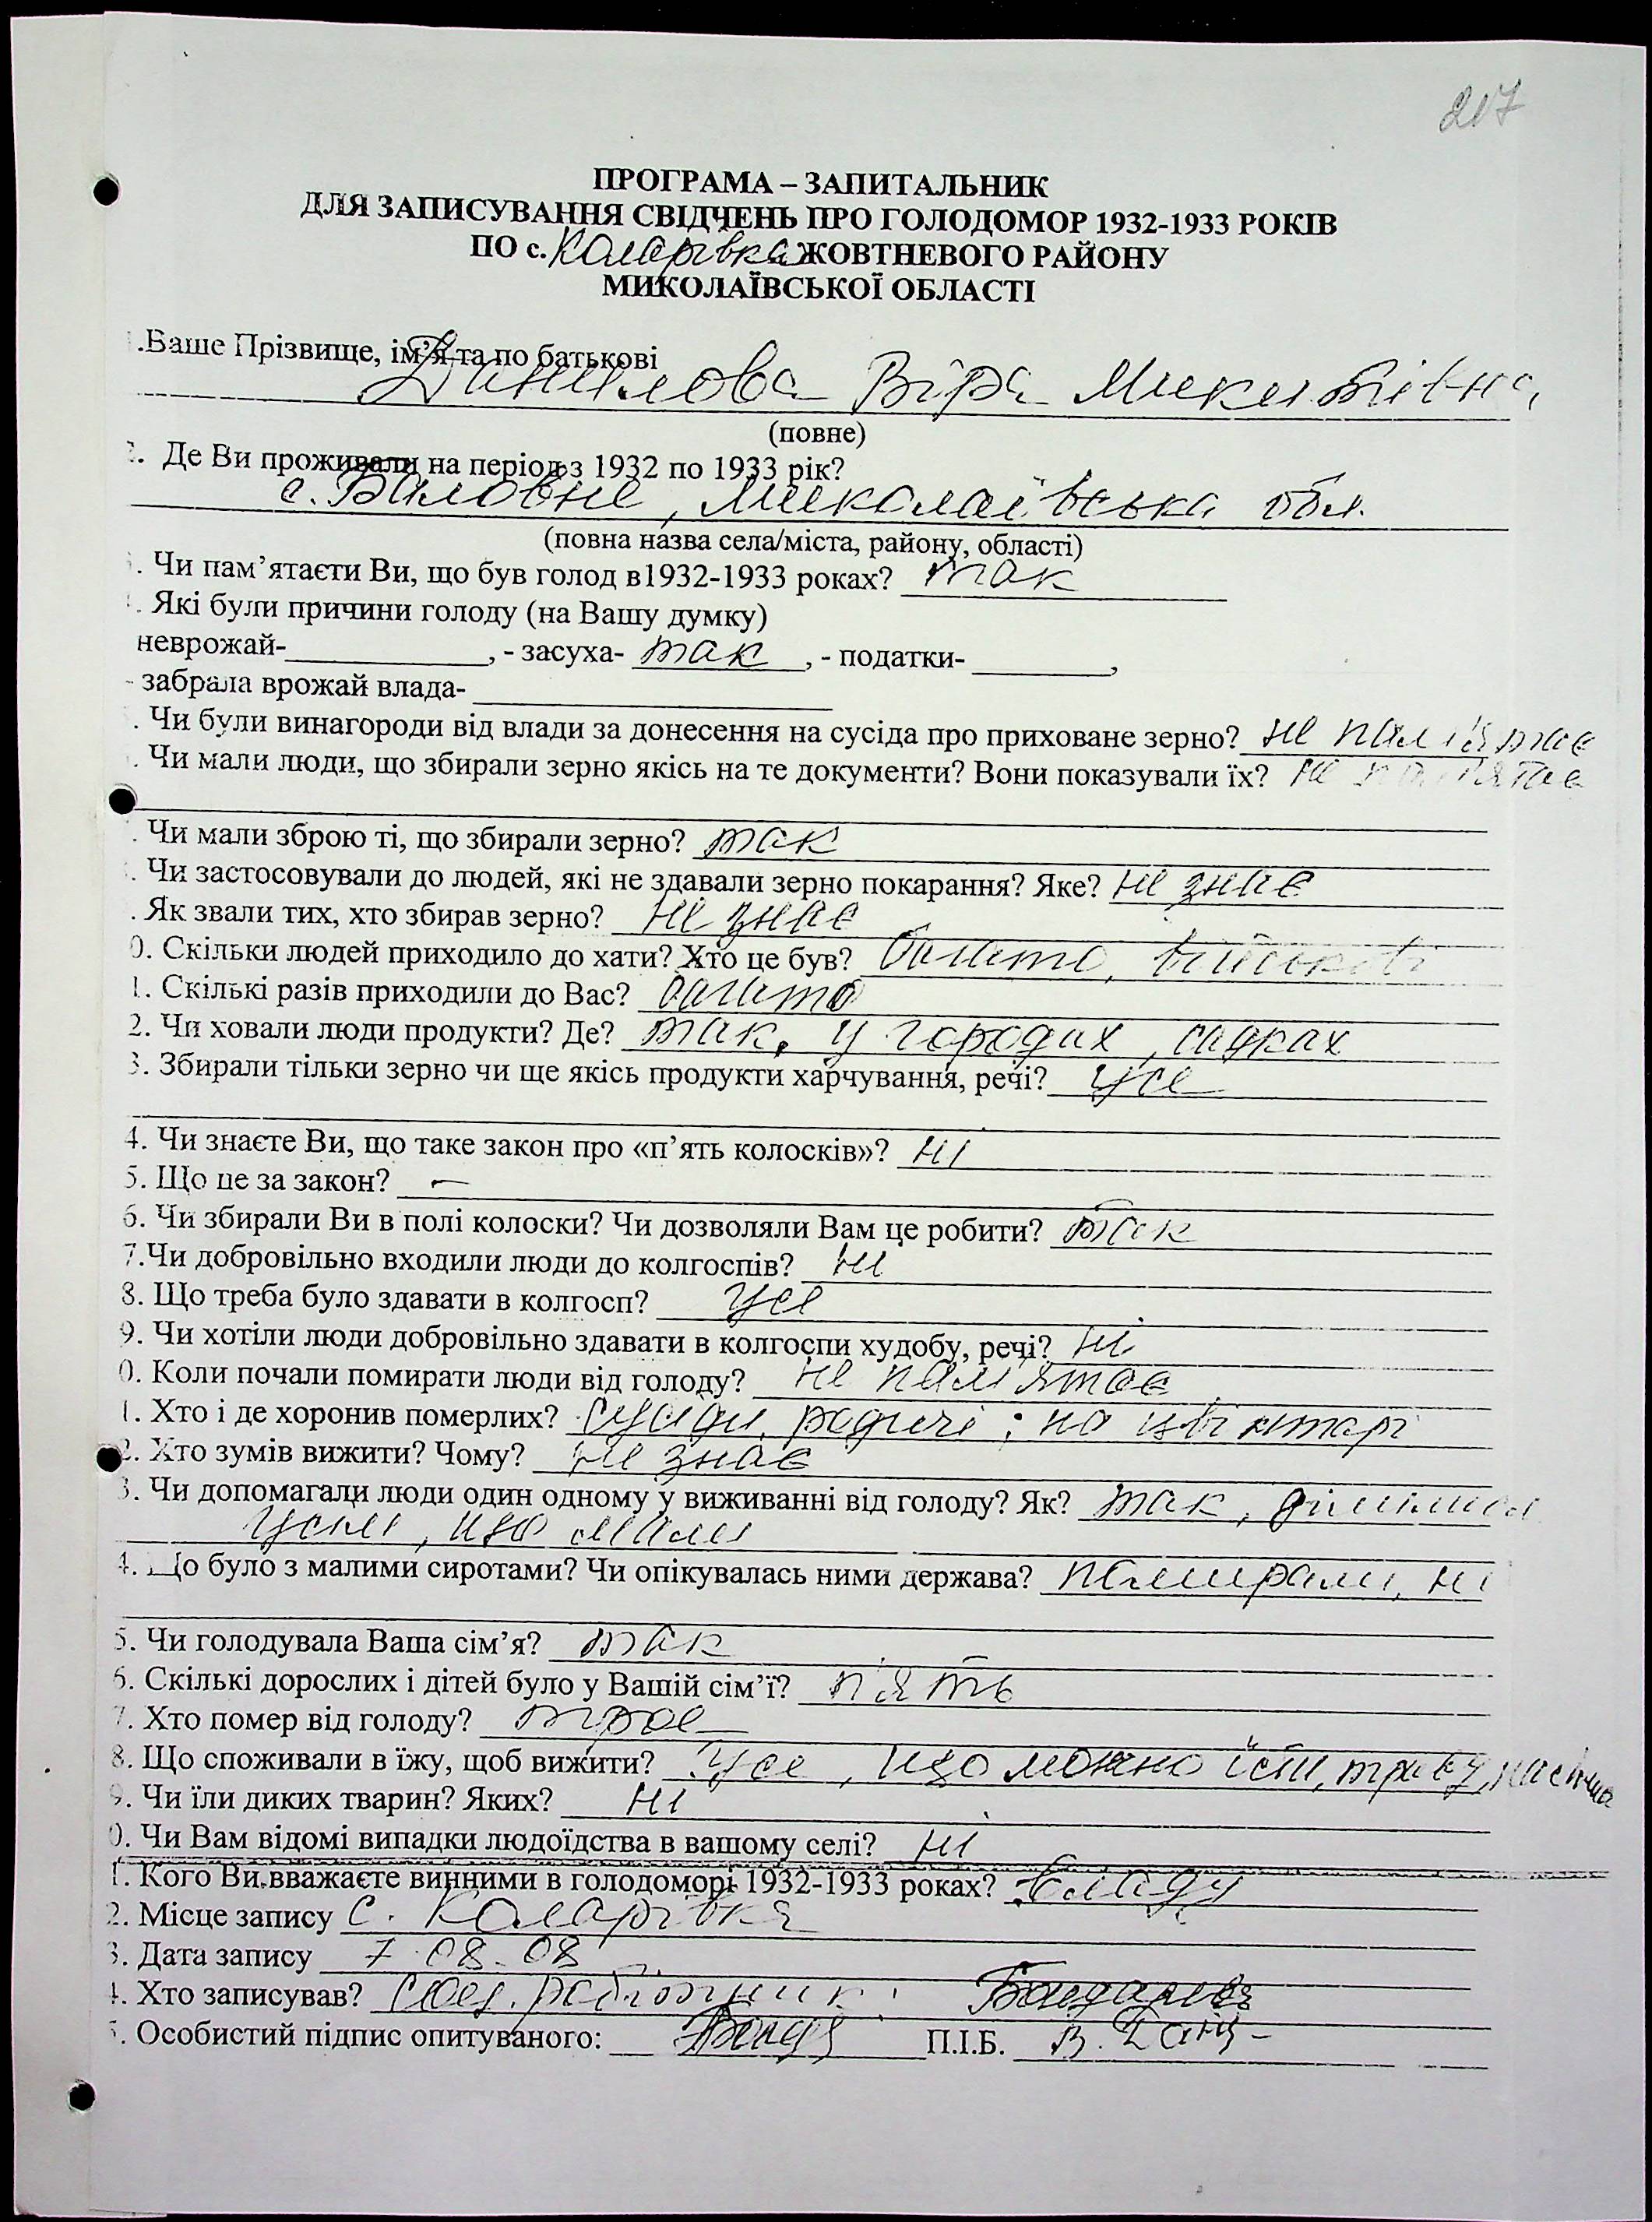 217
ПРОГРАМА – ЗАПИТАЛЬНИК
ДЛЯ ЗАПИСУВАННЯ СВІДЧЕНЬ ПРО ГОЛОДОМОР 1932-1933 РОКІВ
ПО с. Коларівка ЖОВТНЕВОГО РАЙОНУ
МИКОЛАЇВСЬКОЇ ОБЛАСТІ
.Ваше Прізвище, ім’я та по батькові
Данилова Віра Микитівна
(повне)
2. Де Ви проживали на період з 1932 по 1933 рік?
с. Баловне, Миколаївська обл.
(повна назва села/міста, району, області)
. Чи пам’ятаєти Ви, що був голод в1932-1933 роках? так
. Які були причини голоду (на Вашу думку)
неврожай- , - засуха- так , - податки- ,
- забрала врожай влада-
. Чи були винагороди від влади за донесення на сусіда про приховане зерно? не пам'ятає
. Чи мали люди, що збирали зерно якісь на те документи? Вони показували їх? не пам'ятає
. Чи мали зброю ті, що збирали зерно? так
. Чи застосовували до людей, які не здавали зерно покарання? Яке? не знає
. Як звали тих, хто збирав зерно? не знає
0. Скільки людей приходило до хати? Хто це був? багато, військові
1. Скількі разів приходили до Вас? багато
2. Чи ховали люди продукти? Де? так, у городах, садках
3. Збирали тільки зерно чи ще якісь продукти харчування, речі? усе
4. Чи знаєте Ви, що таке закон про «п’ять колосків»? ні
5. Що це за закон? –
6. Чи збирали Ви в полі колоски? Чи дозволяли Вам це робити? так
7.Чи добровільно входили люди до колгоспів? ні
8. Що треба було здавати в колгосп? усе
9. Чи хотіли люди добровільно здавати в колгоспи худобу, речі? ні
0. Коли почали помирати люди від голоду? не пам'ятає
1. Хто і де хоронив померлих? сусіди, родичі; на цвінтарі
2. Хто зумів вижити? Чому? не знає
3. Чи допомагали люди один одному у виживанні від голоду? Як? так, ділились
усим, що мали
4. Що було з малими сиротами? Чи опікувалась ними держава? помирали, ні
5. Чи голодувала Ваша сім’я? так
6. Скількі дорослих і дітей було у Вашій сім’ї? п'ять
7. Хто помер від голоду? троє
8. Що споживали в їжу, щоб вижити? Усе, що можно їсти, траву,
9. Чи їли диких тварин? Яких? ні
0. Чи Вам відомі випадки людоїдства в вашому селі? ні
1. Кого Ви вважаєте винними в голодоморі 1932-1933 роках? владу
2. Місце запису с. Коларівка
3. Дата запису 7.08.08
4. Хто записував? соц. робітник:
5. Особистий підпис опитуваного: П.І.Б. В.